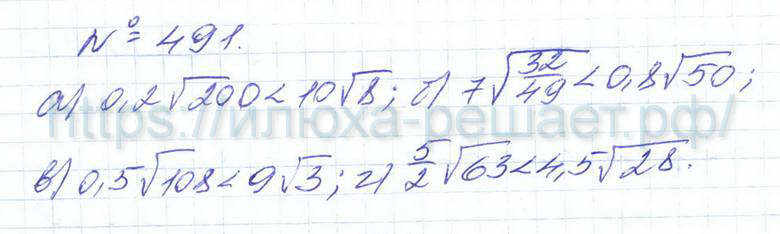 № 491.
а) 0,2√200 < 10√8; б) 7√(32/49) < 0,8√50;
https://илюха-решает.рф/
в) 0,5√108 < 9√3; г) 5/2√63 < 4,5√28.